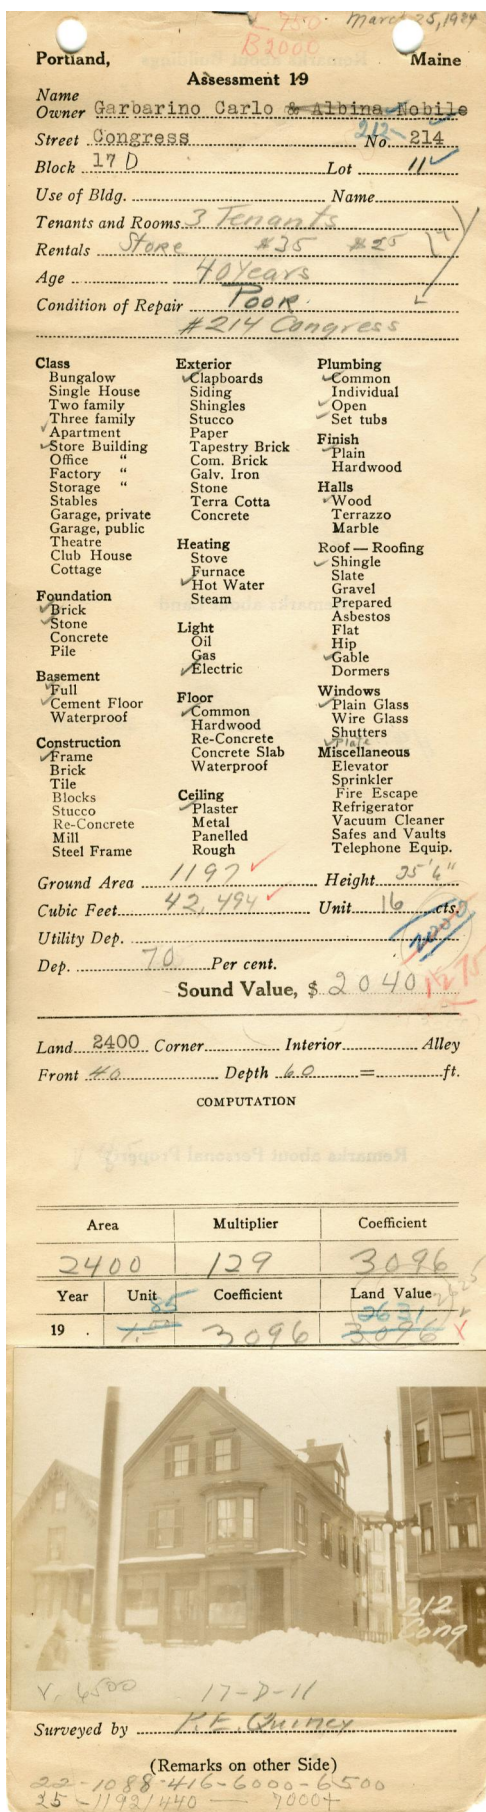 L 750 March 25, 1924
B2000
Portland, Maine
Assessment 19
Name
Owner Garbarino Carlo & Albina Nobile
Street Congress 212- No. 214
Block 17 D Lot 11
Use of Bldg. Name
Tenants and Rooms 3 Tenants
Rentals Store #35 #25
Age 40 Years
Condition of Repair Poor
#214 Congress
Class
Bungalow
Single House
Two family
Three family
Apartment
Store Building
Office "
Factory "
Storage "
Stables
Garage, private
Garage, public
Theatre
Club House
Cottage
Foundation
Brick
Stone
Concrete
Pile
Basement
Full
Cement Floor
Waterproof
Construction
Frame
Brick
Tile
Blocks
Stucco
Re-Concrete
Mill
Steel Frame
Exterior
Clapboards
Siding
Shingles
Stucco
Paper
Tapestry Brick
Com. Brick
Galv. Iron
Stone
Terra Cotta
Concrete
Heating
Stove
Furnace
Hot Water
Steam
Light
Oil
Gas
Electric
Floor
Common
Hardwood
Re-Concrete
Concrete Slab
Waterproof
Ceiling
Plaster
Metal
Panelled
Rough
Plumbing
Common
Individual
Open
Set tubs
Finish
Plain
Hardwood
Halls
Wood
Terrazzo
Marble
Roof — Roofing
Shingle
Slate
Gravel
Prepared
Asbestos
Flat
Hip
Gable
Dormers
Windows
Plain Glass
Wire Glass
Shutters
Plate
Miscellaneous
Elevator
Sprinkler
Fire Escape
Refrigerator
Vacuum Cleaner
Safes and Vaults
Telephone Equip.
Ground Area 1197 Height 35'6"
Cubic Feet 42,494 Unit 16 cts.
Utility Dep. 2000
Dep. 70 Per cent. 1875
Sound Value, $ 2040
Land 2400 Corner Interior Alley
Front 40 Depth 60 = ft.
COMPUTATION
Area Multiplier Coefficient
2400 129 3096
Year Unit Coefficient Land Value 2625
85 2631
19 . 1.00 3096 3096
212
Cong
V. 6500 17-D-11
Surveyed by P.E. Quincy
(Remarks on other Side)
22-1088-416-6000-6500
25-1192/440 — 7000+